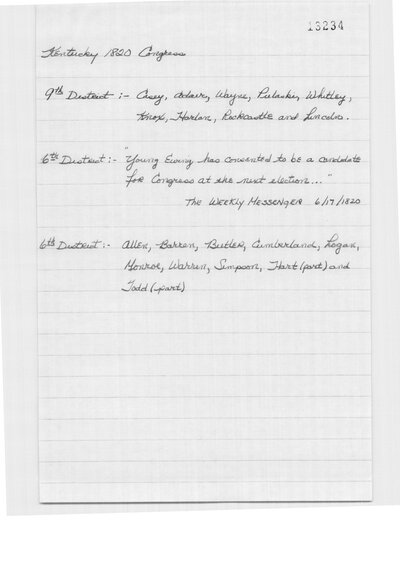 13234
Kentucky 1820 Congress
9th District :- Casey, Adair, Wayne, Pulaski, Whitley,
Knox, Harlan, Rockcastle and Lincoln.
6th District :- "Young Ewing has consented to be a candidate
for Congress at the next election..."
The Weekly Messenger 6/17/1820
6th District :- Allen, Barren, Butler, Cumberland, Logan,
Monroe, Warren, Simpson, Hart (part) and
Todd (part)